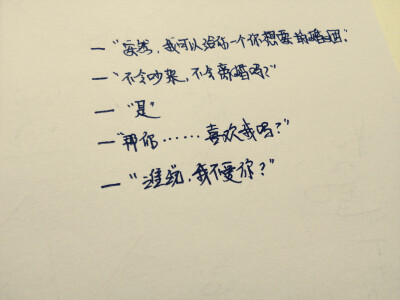 — "安然，我可以给你一个你想要的婚姻."
— "不会吵架，不会离婚吗？"
— "是"
— "那你……喜欢我吗？"
— "谁说，我不爱你？"